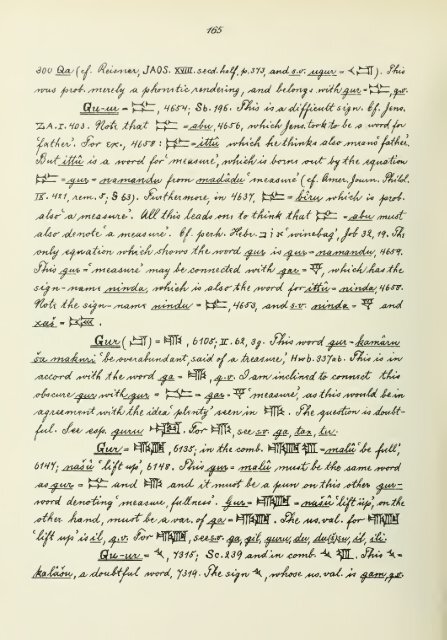 165
300 Qa (cf. Reisner, JAOS. XVIII. secd. half, p. 373, and s.v. ugur = 𒌋). This
was prob. merely a phonetic rendering, and belongs with gur = , q.v.
Gu-ur = , 4654; Sb. 196. This is a difficult sign. Cf. Jens.
ZA. I. 403. Note that = abu, 4656, which Jens. took to be a word for
'father'. For ex., 4658: = ittû which he thinks also means 'father'.
But ittû is a word for 'measure', which is borne out by the equation
= gur = namandu from madâdu 'measure' (cf. Amer. Journ. Philol.
IX. 421, rem. 5; § 63). Furthermore, in 4637, = bîru which is prob.
also 'a measure'. All this leads one to think that = abu must
also denote 'a measure'. Cf. perh. Hebr. אוב 'winebag', Job 32, 19. The
only equation which shows the word gur is gur = namandu, 4659.
This gur = 'measure' may be connected with gar = , which has the
sign-name ninda, which is also the word for ittû = ninda, 4658.
Note the sign-name nindu = , 4653, and s.v. ninda = and
xaš = .
Gur ( ) = , 6105; II. 62, 39. This word gur = kamâru
ša makuri 'be overabundant, said of a treasure,' Hwb. 337ab. This is in
accord with the word ga = , q.v. I am inclined to connect this
obscure gur with gur = = gar = 'measure', as this would be in
agreement with the idea 'plenty' seen in . The question is doubt-
ful. See esp. guru . For , see s.v. ga, tax, tu.
Gur = , 6135, in the comb. = malû 'be full',
6147; našû 'lift up', 6148. This gur = malû must be the same word
as gur = and and it must be a pun on this other gur-
word denoting 'measure, fullness'. Gur = = našû 'lift up', on the
other hand, must be a var. of ga = . The us. val. for
'lift up' is il, q.v. For , see s.v. ga, gil, guru, du, du(s)su, il, ili.
Gu-ur = , 7315; Sc. 239 and in comb. . This =
kalâšu, a doubtful word, 7319. The sign , whose us. val. is gam, q.v.